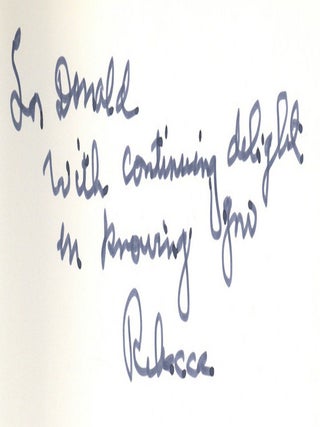 For Donald
With continuing delight
in knowing you
Rebecca